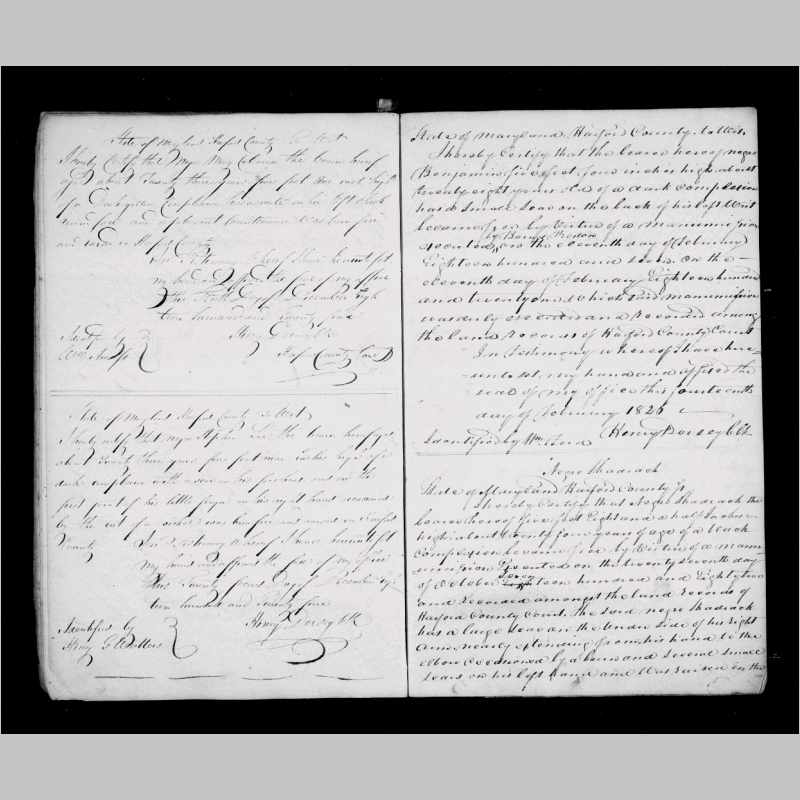 State of Maryland Harford County to Wit
I hereby Certify that Negro Mary Coleman the bearer hereof
aged about Twenty three years five feet
and raised in Harford County
In Testimony Whereof I have hereunto set
my hand and affixed the seal of my office
this Tenth Day of December Eigh
teen hundred and twenty five
Identified by Henry Dorsey Clk
Harford County Court
State of Maryland Harford County to Wit
I hereby certify that negro Stephen Lee the bearer hereof aged
about twenty three years five feet nine inches high of a
dark complexion with a scar on his forehead and on the
first joint of his little finger on his right hand occasioned
by the cut of a sickle was born free and raised in Harford
County In Testimony Whereof I have hereunto set
my hand and affixed the seal of my office
this Twenty second Day of December Eigh
teen hundred and Twenty five
Identified by Henry Dorsey Clk
Henry G Watters
State of Maryland Harford County to Wit.
I hereby Certify that the bearer hereof negro
Benjamin five feet four inches high about
twenty eight years old of a dark complexion
has a Small Scar on the back of his left Wrist
became free by Virtue of a manumission
executed by on the eleventh day of February
Eighteen hundred and on the
eleventh day of February Eighteen hundred
and twenty one which said manumission
was duly executed and Recorded among
the land records of Harford County Court
In Testimony whereof I have here
unto set my hand and affixed the
seal of my office this fourteenth
day of February 1826
Identified by Wm Henry Dorsey Clk
Negro Shadrach
State of Maryland Harford County Sc
I hereby Certify that Negro Shadrach the
bearer hereof five feet Eight and a half inches
high about twenty four years of age of a black
Complexion became free by Virtue of a manu
mission Executed on the twenty seventh day
of October Seven teen hundred and Eighty two
and Recorded amongst the land records of
Harford County Court. The said negro Shadrach
has a large Scar on the under side of his right
arm nearly extending from his hand to the
elbow Occasioned by a burn and several small
Scars on his left hand and was raised in the